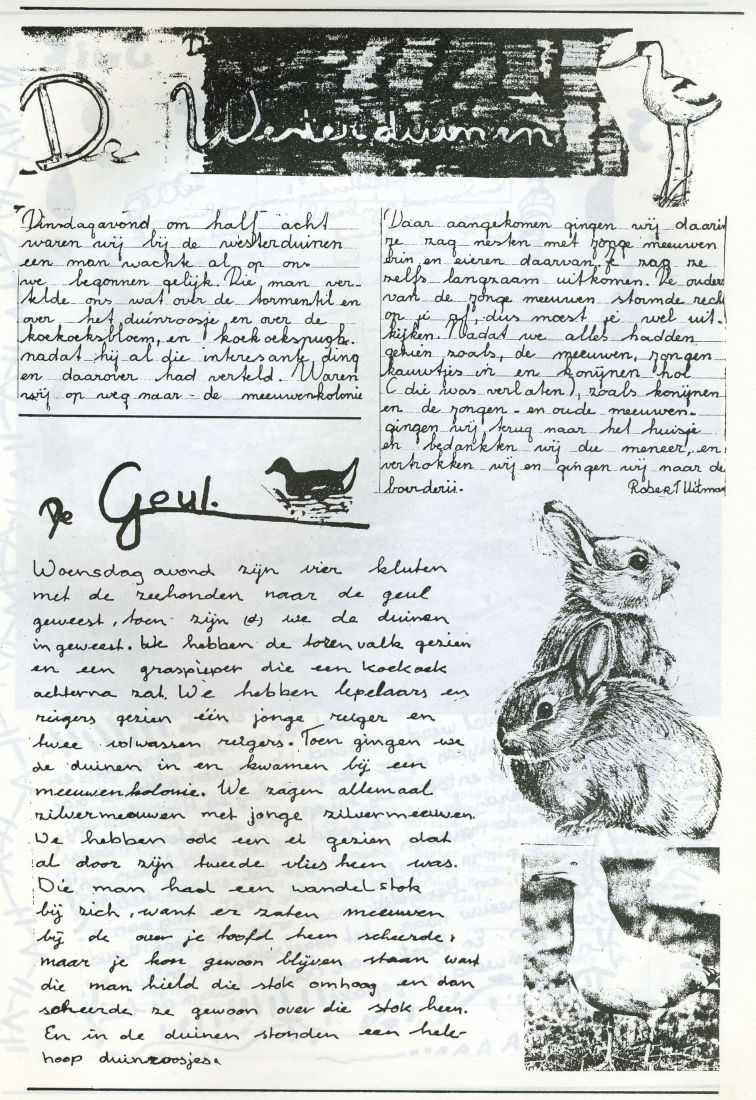 De Westerduinen
Dinsdagavond om half acht
waren wij bij de westerduinen
een man wachte al op ons
we begonnen gelijk. Die man ver-
telde ons wat over de tormentil en
over het duinroosje en over de
koekoeksbloem, en koekoekspuge.
nadat hij al die interesante ding
en daarover had verteld. Waren
wij op weg naar de meeuwenkolonie
Daar aangekomen gingen wij daarin
je zag nesten met jonge meeuwen
erin en eieren daarvan je zag ze
zelfs langzaam uitkomen. De ouders
van de jonge meeuwen stormde recht
op je af, dus moest je wel uit-
kijken. Nadat we alles hadden
gezien zoals, de meeuwen, jongen
kauwtjes in en konijnen hol
(die was verlaten), zoals konijnen
en de jongen - en oude meeuwen.
gingen wij terug naar het huisje
en bedankten wij die meneer, en
vertrokken wij en gingen wij naar de
boerderij. Robert Uitman
De Geul.
Woensdag avond zijn vier kluten
met de zeehonden naar de geul
geweest, toen zijn (d) we de duinen
in geweest. We hebben de toren valk gezien
en een graspieper die een koekoek
achterna zat. We hebben lepelaars en
reigers gezien één jonge reiger en
twee volwassen reigers. Toen gingen we
de duinen in en kwamen bij een
meeuwenkolonie. We zagen allemaal
zilvermeeuwen met jonge zilvermeeuwen.
We hebben ook een ei gezien dat
al door zijn tweede vlies heen was.
Die man had een wandelstok
bij zich, want er zaten meeuwen
bij de over je hoofd heen scheerde,
maar je kon gewoon blijven staan want
die man hield die stok omhoog en dan
scheerde ze gewoon over die stok heen.
En in de duinen stonden een hele
hoop duinroosjes.